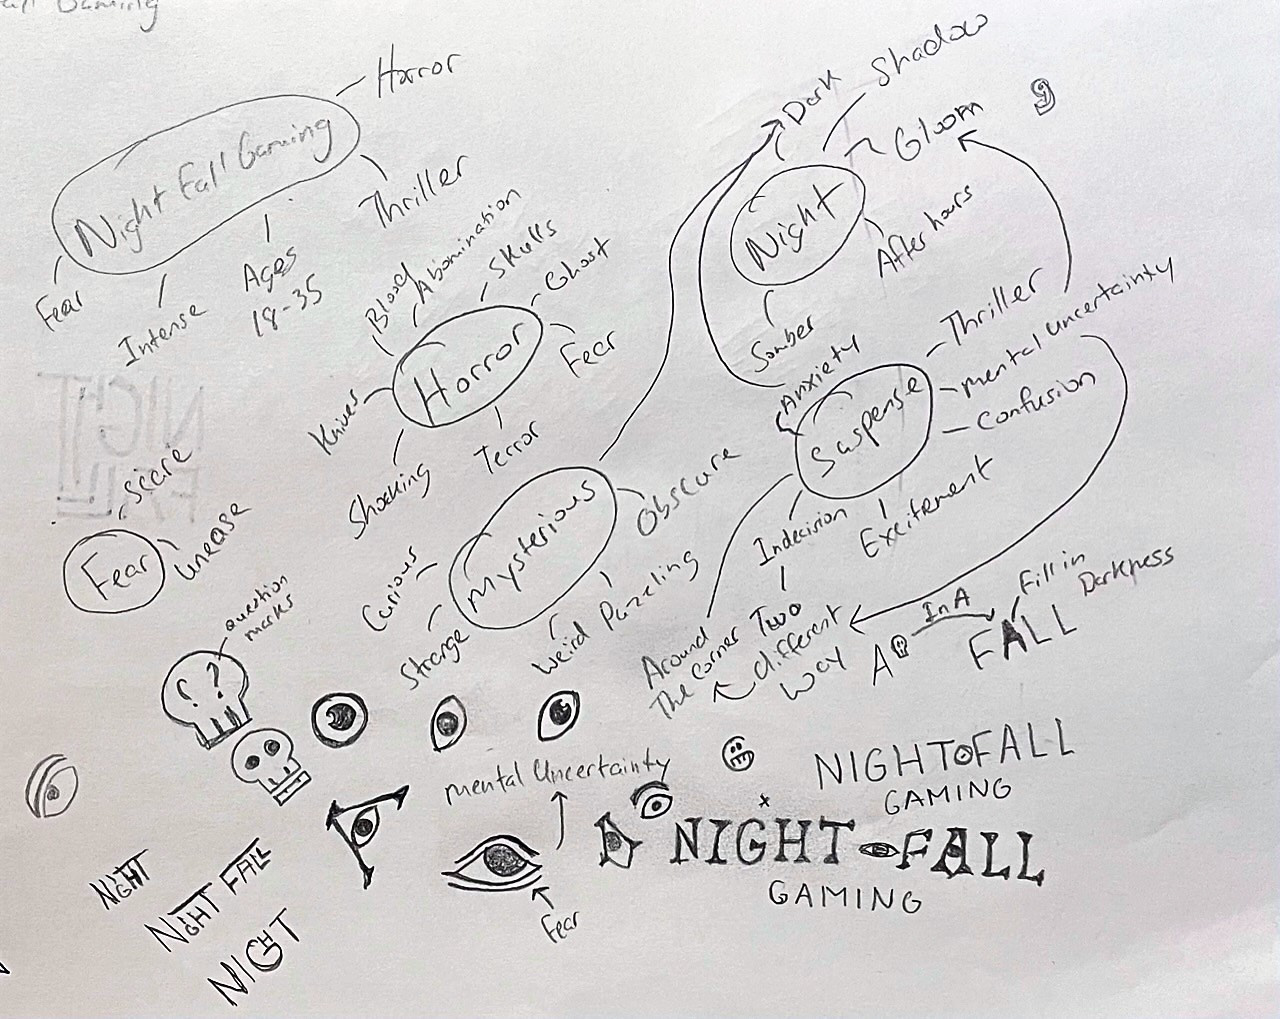 Gaming
Night Fall Gaming
Horror
Thriller
Ages
18-35
Intense
Fear
Horror
Blood
Abomination
Skulls
Ghost
Fear
Terror
Shocking
Knives
Night
Dark
Shadow
Gloom
After hours
Somber
Suspense
Anxiety
Thriller
mental uncertainty
Confusion
Excitement
Indecision
Two
different
way
Around
The corner
Mysterious
Obscure
Puzzeling
Weird
Strange
Curious
Fear
Scare
Unease
NIGHT
FALL
question
marks
A
In A
FALL
Fill in
Darkness
mental Uncertainty
Fear
NIGHT FALL
GAMING
NIGHT FALL
GAMING
NIGHT
NIGHT FALL
NIGHT